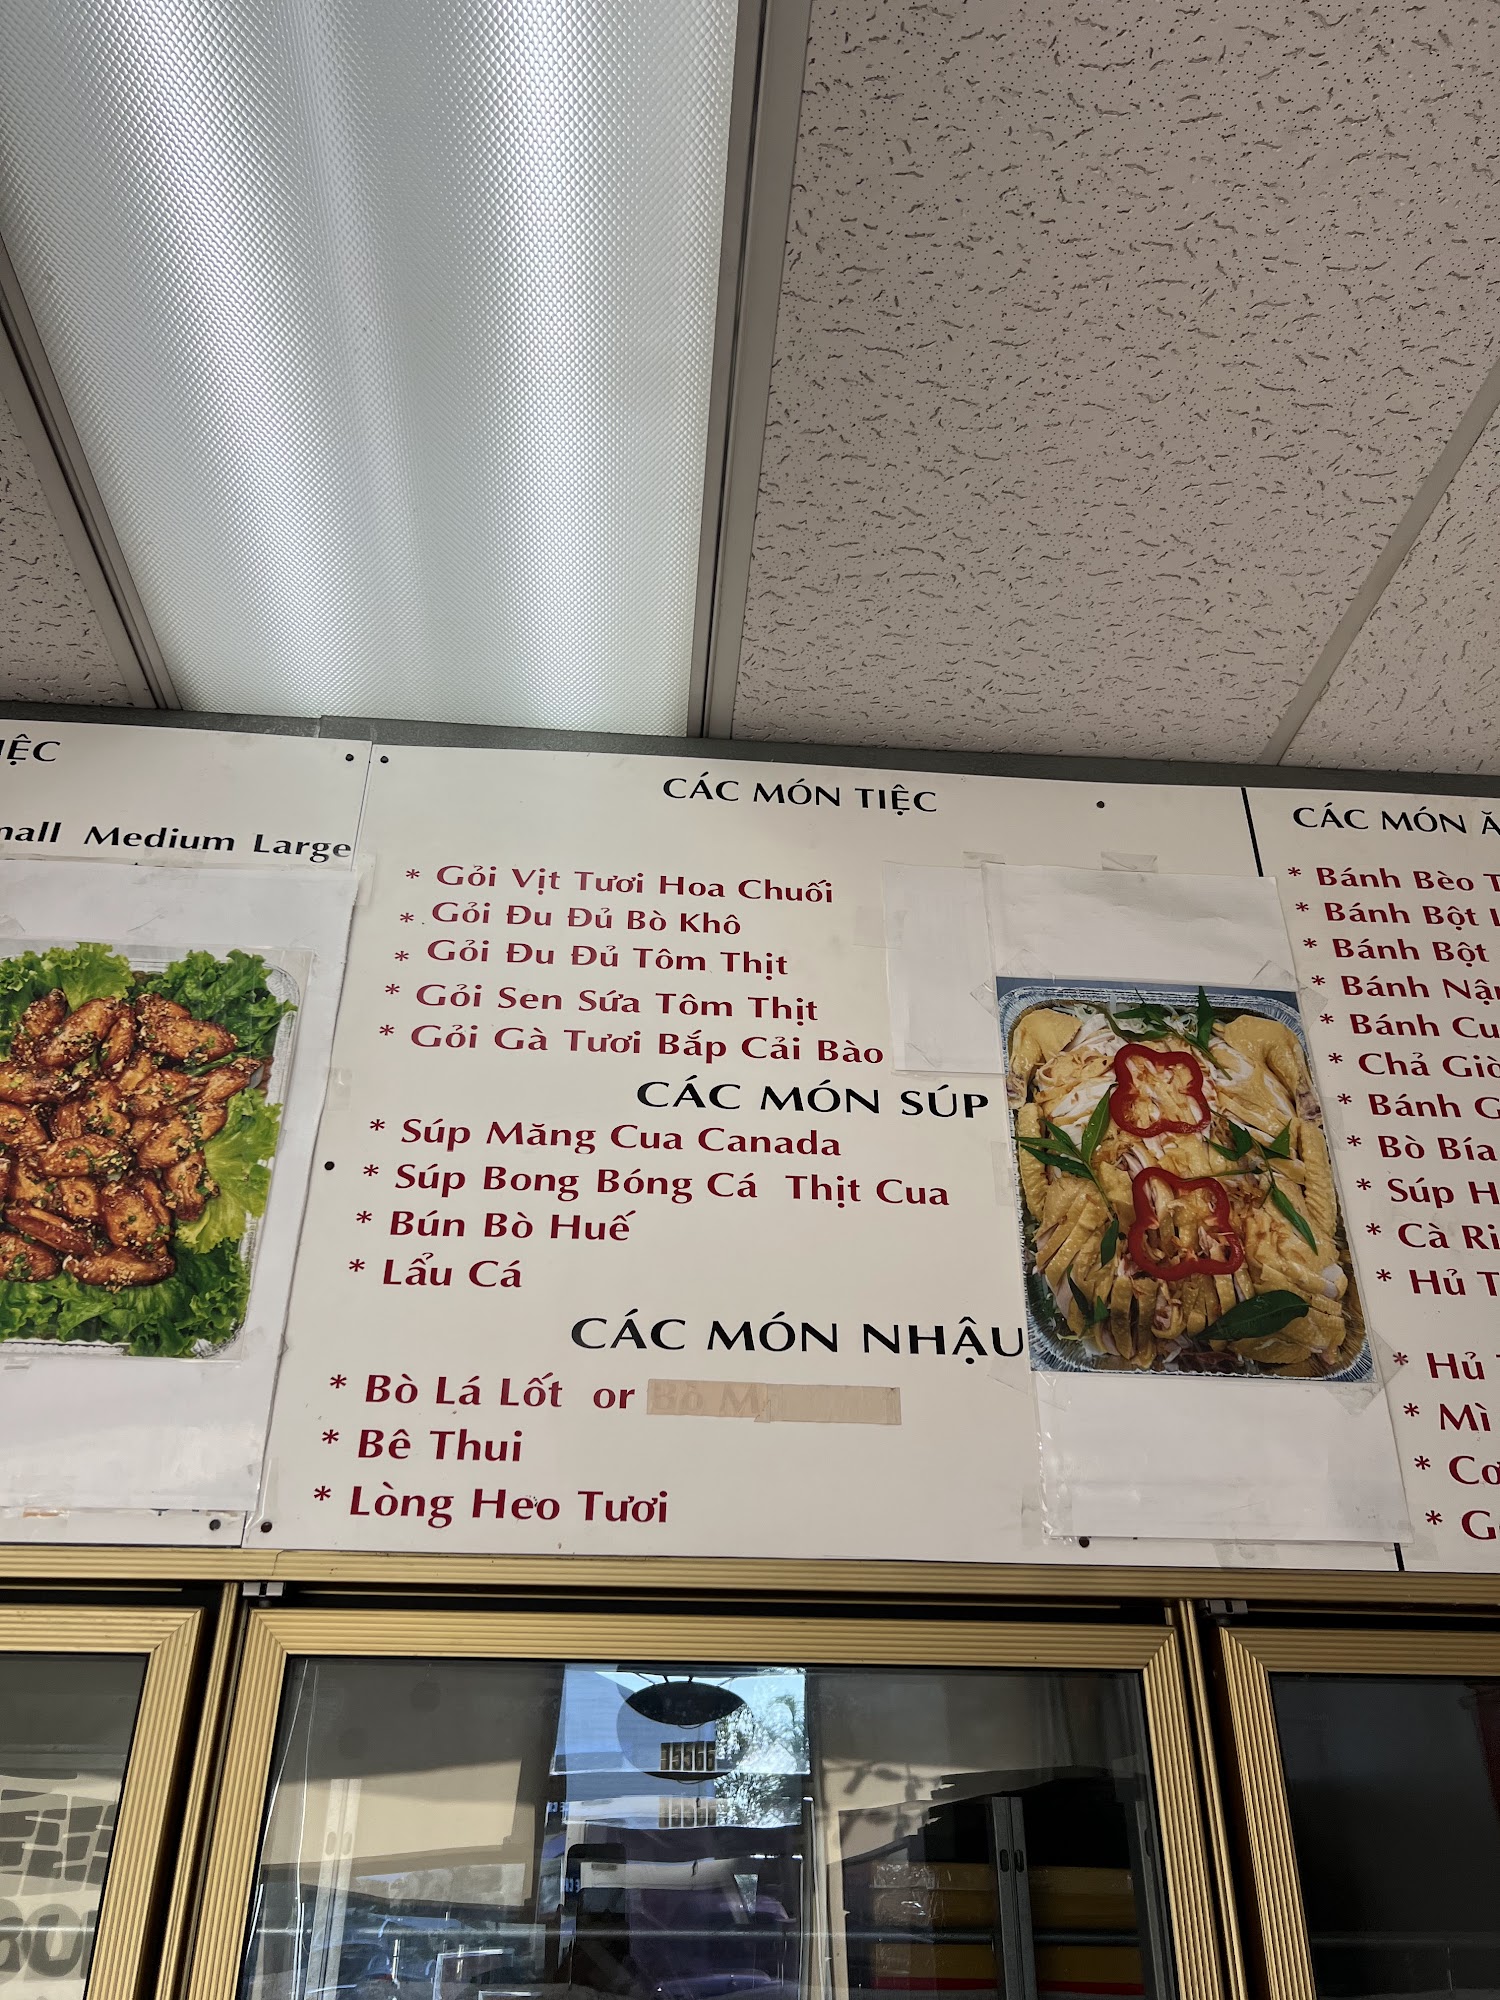 Small Medium Large
CÁC MÓN TIỆC
* Gỏi Vịt Tươi Hoa Chuối
* Gỏi Đu Đủ Bò Khô
* Gỏi Đu Đủ Tôm Thịt
* Gỏi Sen Sứa Tôm Thịt
* Gỏi Gà Tươi Bắp Cải Bào
CÁC MÓN SÚP
* Súp Măng Cua Canada
* Súp Bong Bóng Cá Thịt Cua
* Bún Bò Huế
* Lẩu Cá
CÁC MÓN NHẬU
* Bò Lá Lốt or Bò
* Bê Thui
* Lòng Heo Tươi
CÁC MÓN
* Bánh Bèo
* Bánh Bột
* Bánh Bột
* Bánh
* Bánh
* Chả Giò
* Bánh
* Bò Bía
* Súp
* Cà Ri
* Hủ
* Hủ
* Mì